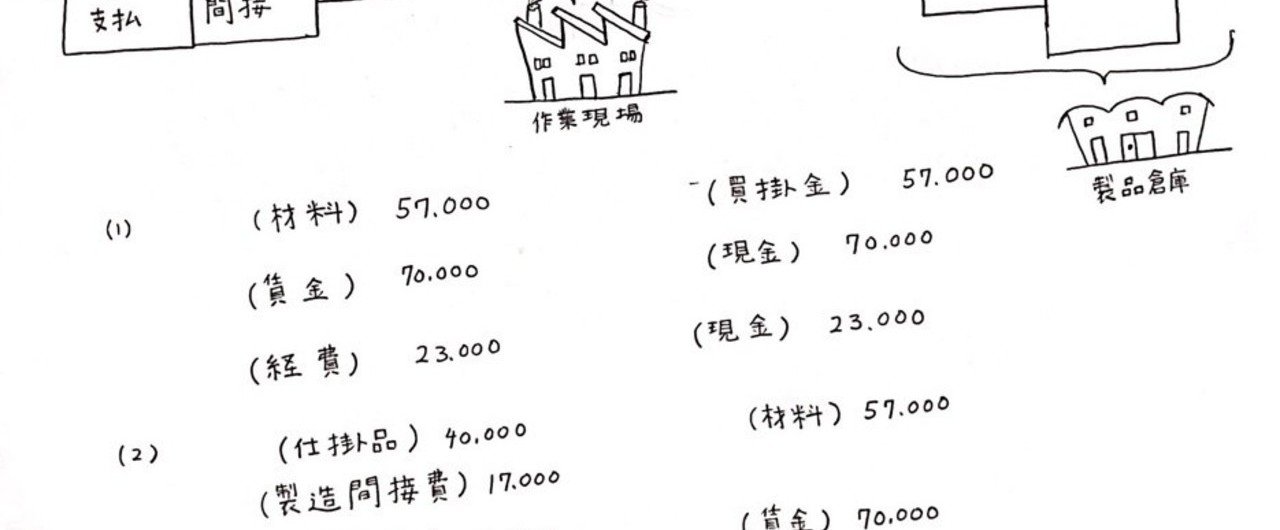 支払 間接
作業現場
製品倉庫
(1) (材料) 57.000 (買掛金) 57.000
(賃金) 70.000 (現金) 70.000
(経費) 23.000 (現金) 23.000
(2) (仕掛品) 40.000 (材料) 57.000
(製造間接費) 17.000
(賃金) 70.000